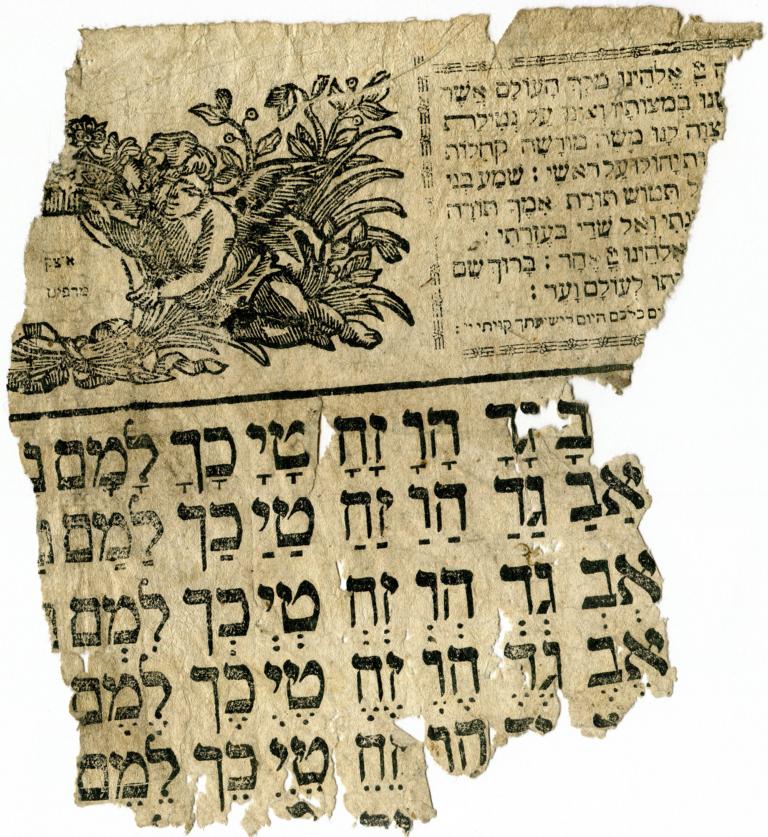 אלהינו מלך העולם אשר
במצותיו וצונו על נטילת
צוה לנו משה מורשה קהלות
יחולו על ראשי : שמע בני
תטוש תורת אמך תורה
ואל שדי בעזרתי :
אלהינו יי אחד : ברוך שם
לעולם ועד :
כלכם היום לישועתך קויתי יי :
בָ גָדָ הָוָ זָחָ טָיָ כָךָ לָמָם
אַבַ גַדַ הַוַ זַחַ טַיַ כַךַ לַמַם
אְבְ גְדְ הְוְ זְחְ טְיְ כְךְ לְמְם
אֶבֶ גֶדֶ הֶוֶ זֶחֶ טֶיֶ כֶךֶ לֶמֶם
הֵוֵ זֵחֵ טֵיֵ כֵךֵ לֵמֵם